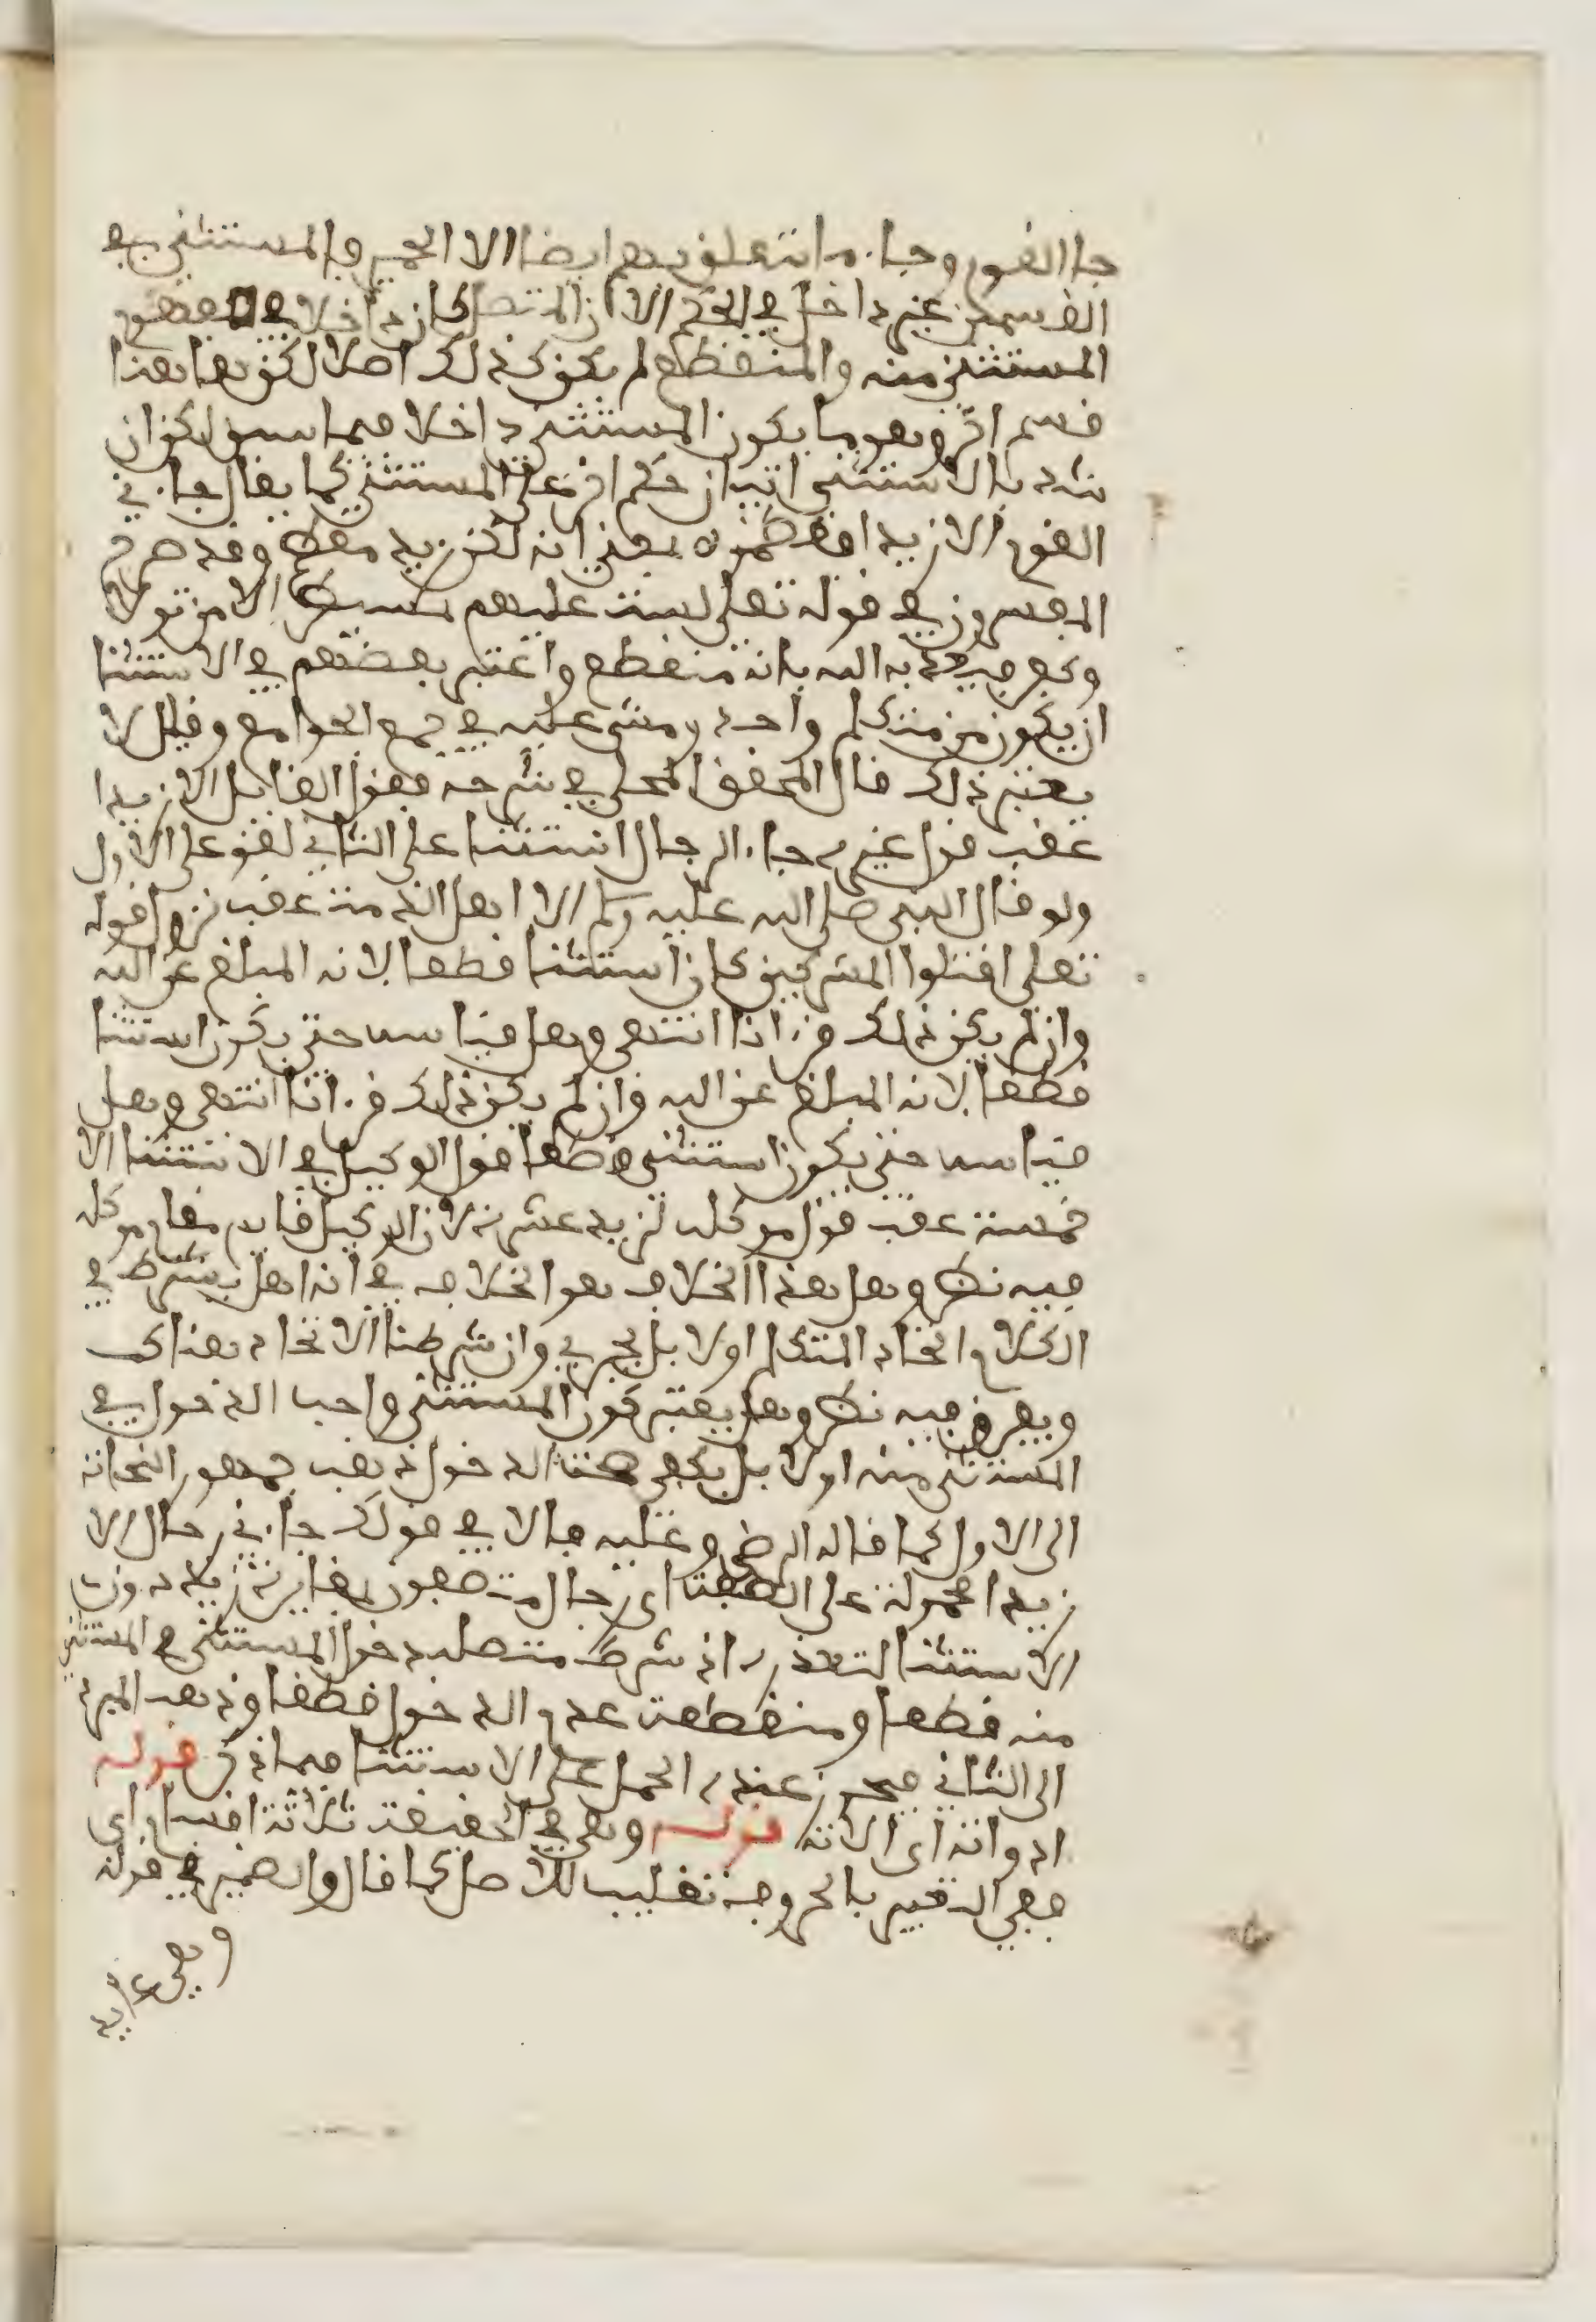 جا القوم وجاء ما يتعلق بهم ايضا الا الحمير فالمستثنى في
القسمين غير داخل في الحكم الا ان المتصل كان داخلا في مفهوم
المستثنى منه والمنقطع لم يكن كذلك اصلا لكن هاهنا
قسم اخر وهو ما يكون المستثنى داخلا فيما سبق لكن ان
بالاستثنى اتيان حكم اخر على المستثنى كما يقال جاءني
القوم الا زيد افضلهم يعني انه لكن زيد وقد صرح
المفسرون في قوله تعلى لست عليهم بمسيطر الا من تولا
وكفر فيعذبه الله بانه منقطع واعتبر بعضهم في الاستثنا
ان يكون من متكلم واحد ومشى عليه في جمع الجوامع وقيل لا
يعتبر ذلك قال المحقق المحلي في شرحه فقول القايل الا زيدا
عقب قول غيره جاء الرجال استثنا على الثاني لغو على الاول
ولو قال النبي صلى الله عليه وسلم الا اهل الذمة عقب نزول قوله
تعلى اقتلوا المشركين كان استثنا قطعا لانه المبلغ عن الله
وان لم يكن ذلك قرءانا انتهى وهل قياسه حتى يكون استثنا
قطعا لانه المبلغ عن الله وان لم يكن ذلك قرءانا انتهى وهل
قياسه حتى يكون استثنى قطعا قول الوكيل في الاستثنا الا
خمسة عقب قول موكله لزيد عشرة لان الوكيل قايم مقام موكله
فيه نظر وهل هذا الخلاف هو الخلاف في انه هل يشترط في
الكلام اتحاد المتكلم اولا بل يجري وان شرطنا الاتحاد هناك
ويفرق فيه نظر وهل يعتبر كون المستثنى واجب الدخول في
المستثنى منه اولا بل يكفي صحة الدخول ذهب جمهور النحاة
الى الاول كما قاله الرضي وعليه فالا في قولك جاءني رجال الا
زيدا محمولة على الصفة اى رجال متصفون بمغايرة زيد دون
الاستثنا لتعذره اذ شرط متصله دخول المستثنى في المستثنى
منه قطعا ومنقطعه عدم الدخول قطعا وذهب المبرد
الى الثاني فيجوز عنده الحمل على الاستثنا فيما ذكر قوله
ادواته اى الاته قوله وهي في الحقيقة ثلاثة اقسام اى
ففي التعبير بالحروف تغليب للاصل كما قال والضمير في قوله
وهي عايد